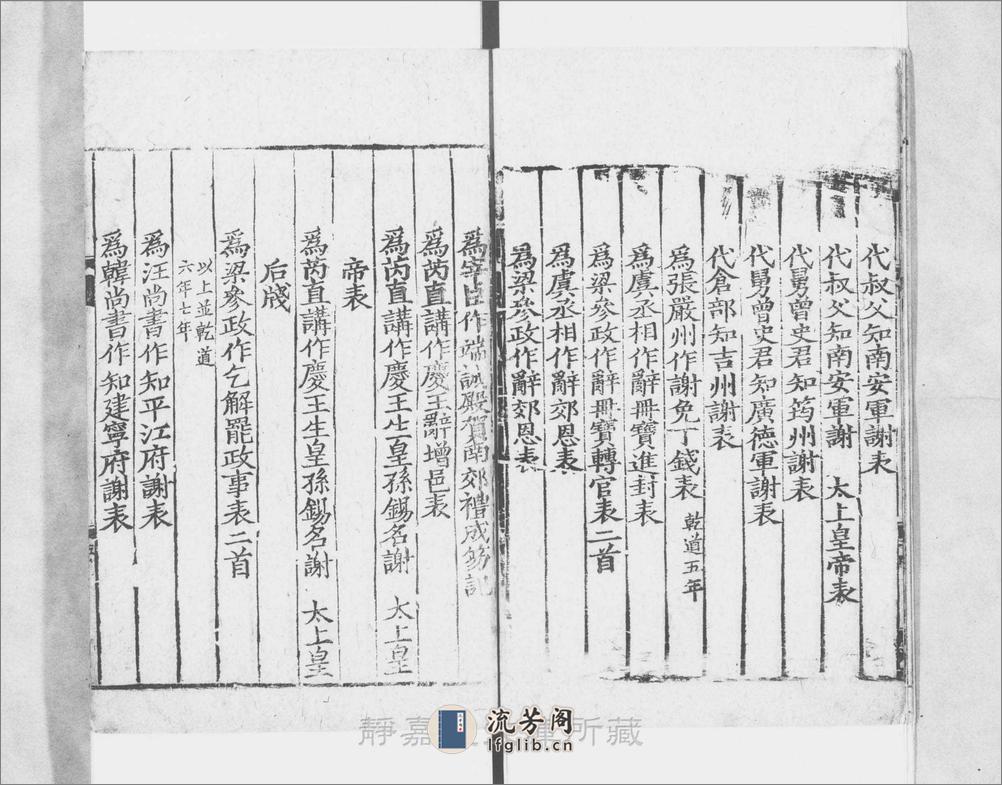 代叔父知南安軍謝表
代叔父知南安軍謝　太上皇帝表
代舅曾史君知筠州謝表
代舅曾史君知廣德軍謝表
代倉部知吉州謝表
為張嚴州作謝免丁錢表　乾道五年
為虞丞相作辭冊寶進封表
為梁參政作辭冊寶轉官表二首
為虞丞相作辭郊恩表
為梁參政作辭郊恩表
為宰臣作端誠殿賀南郊禮成笏記
為芮直講作慶王辭增邑表
為芮直講作慶王生皇孫錫名謝　太上皇
帝表
為芮直講作慶王生皇孫錫名謝　太上皇
后牋
為梁參政作乞解罷政事表二首
以上並乾道
六年七年
為汪尚書作知平江府謝表
為韓尚書作知建寧府謝表
靜嘉 所藏
流芳阁
lfglib.cn